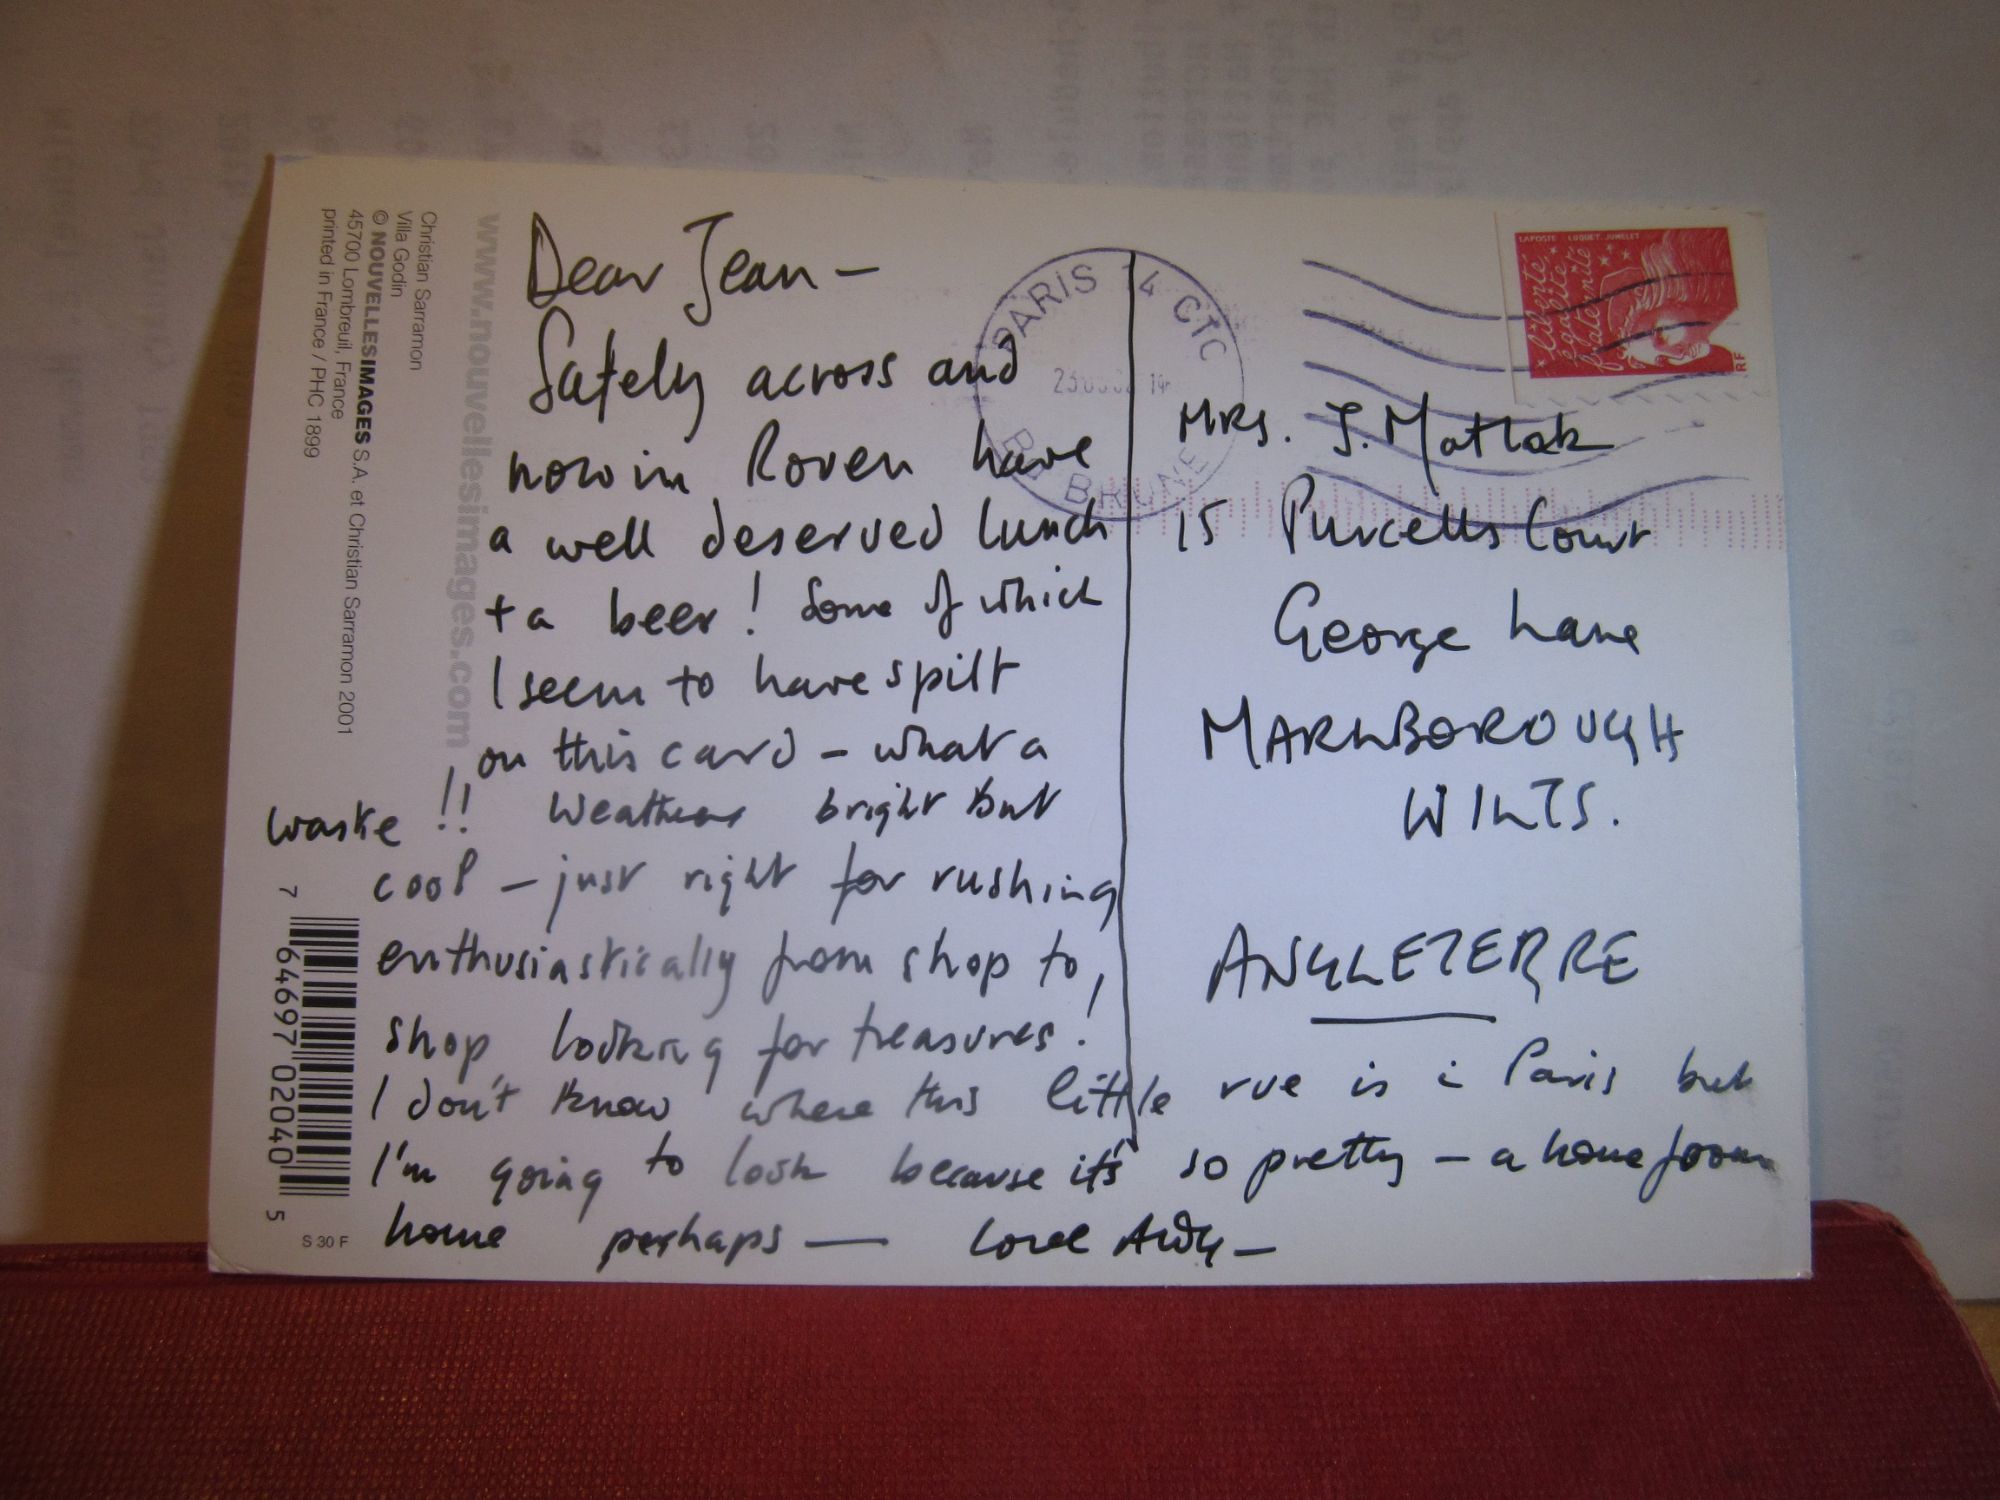 Dear Jean –
Safely across and
now in Rouen have
a well deserved lunch
+ a beer! Some of which
I seem to have spilt
on this card – what a
waste !! Weather bright but
cool – just right for rushing
enthusiastically from shop to
shop looking for treasures!
I don't know where this little rue is i Paris but
I'm going to look because it's so pretty – a home from
home perhaps — Love Andy –
MRS. J. Matlak
15 Purcells Court
George Lane
MARLBOROUGH
WILTS.
ANGLETERRE
PARIS 14 CTC
BRUNE
LAPOSTE LUQUET-JUMELET
liberté
égalité
fraternité
RF
www.nouvellesimages.com
Christian Sarramon
Villa Godin
© NOUVELLES IMAGES S.A. et Christian Sarramon 2001
45700 Lombreuil, France
printed in France / PHC 1899
7 64697 02040 5
S 30 F